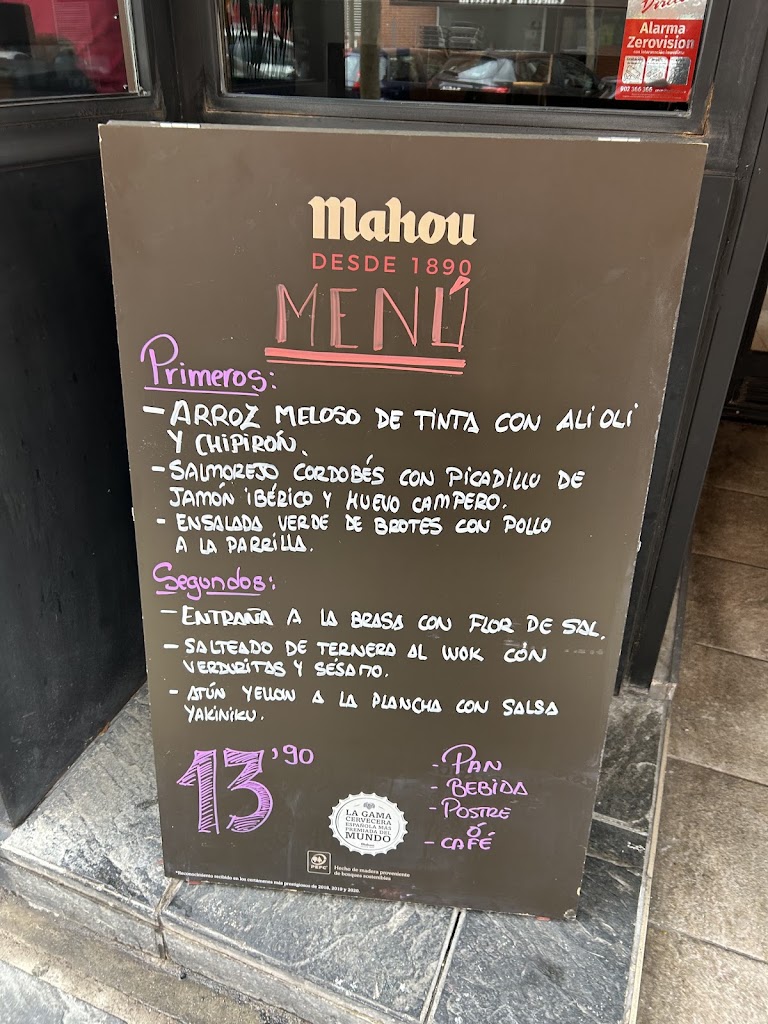 Alarma
Zerovision
902 366 366
Mahou
DESDE 1890
MENÚ
Primeros:
- ARROZ MELOSO DE TINTA CON ALI OLI
Y CHIPIRÓN.
- SALMOREJO CORDOBÉS CON PICADILLO DE
JAMÓN IBÉRICO Y HUEVO CAMPERO.
- ENSALADA VERDE DE BROTES CON POLLO
A LA PARRILLA.
Segundos:
- ENTRAÑA A LA BRASA CON FLOR DE SAL.
- SALTEADO DE TERNERA AL WOK CÓN
VERDURITAS Y SÉSAMO.
- ATÚN YELLOW A LA PLANCHA CON SALSA
YAKINIKU.
13'90
- PAN
- BEBIDA
- POSTRE
Ó
- CAFÉ
LA GAMA
CERVECERA
ESPAÑOLA MÁS
PREMIADA DEL
MUNDO
Mahou
PEFC
Hecho de madera proveniente
de bosques sostenibles
*Reconocimiento recibido en los certámenes más prestigiosos de 2018, 2019 y 2020.